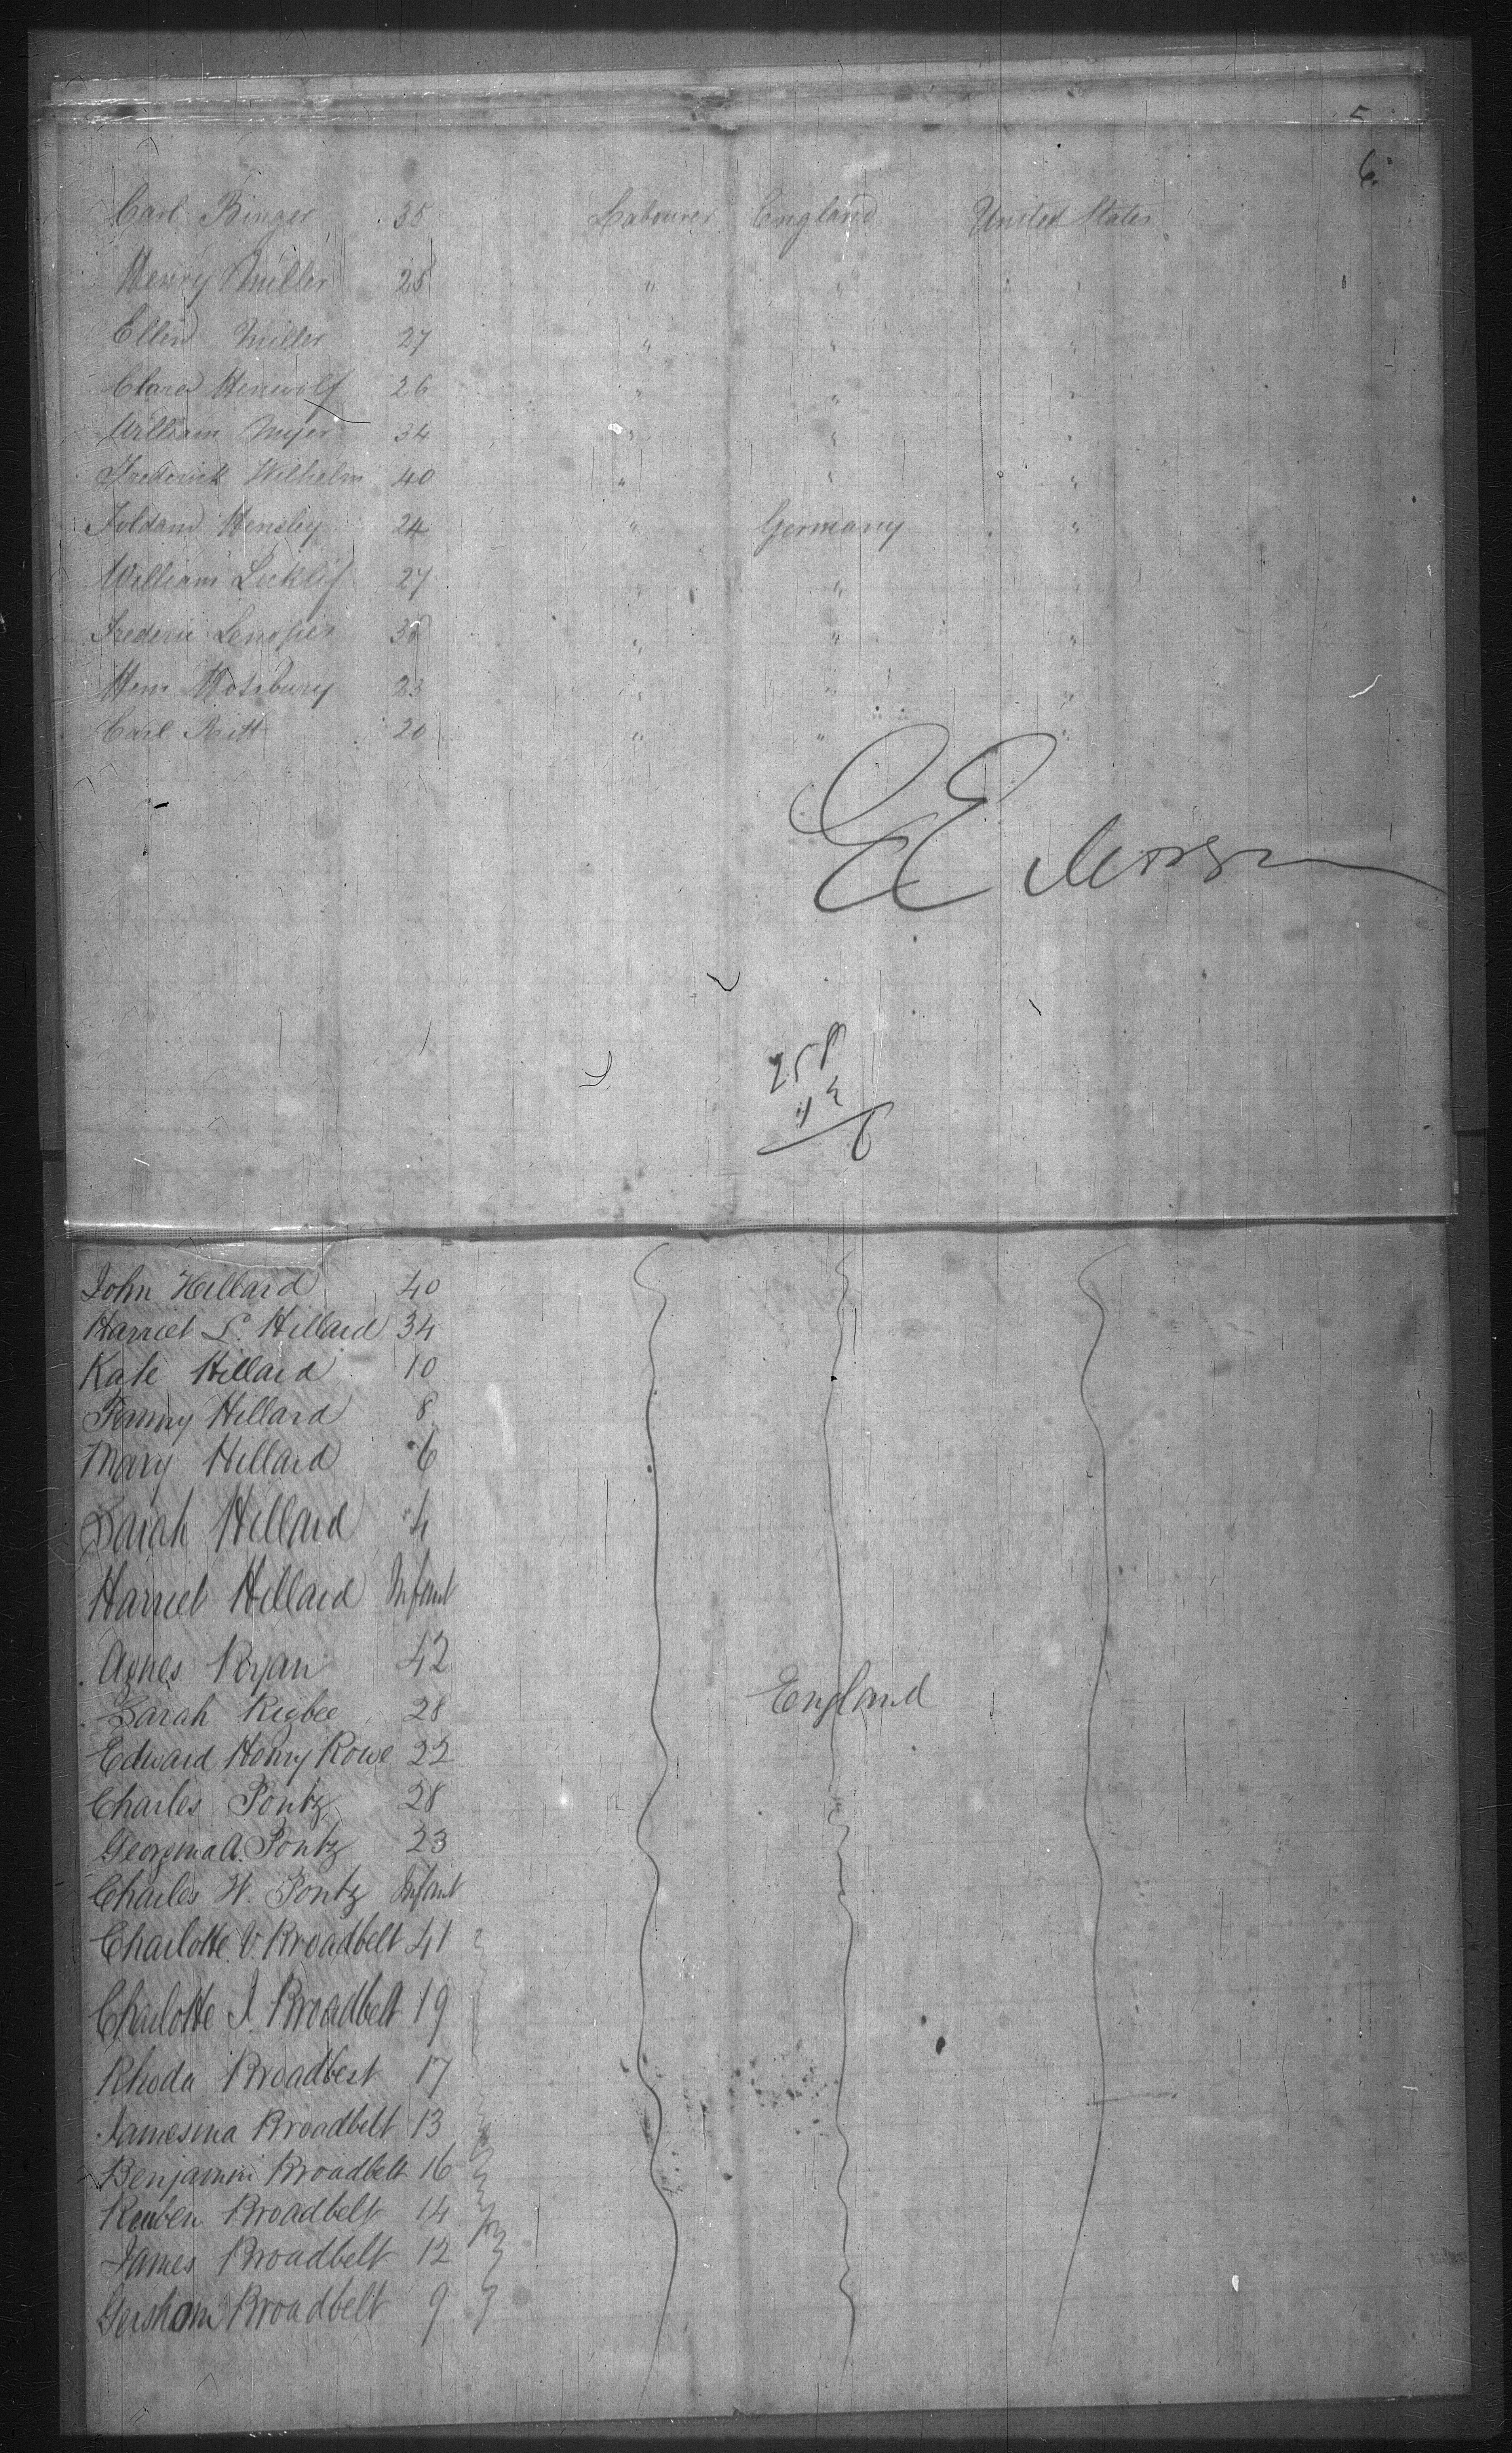 5
6
Carl Binger 35 Labourer England United States
Henry Miller 25 " " "
Ellen Miller 27 " " "
Clara Henwolf 26 " " "
William Myer 34 " " "
Frederick Wilhelm 40 " " "
Hensley 24 " Germany "
William Licklif 27 " " "
Frederic 38 " " "
Mossbury 23 " " "
Carl Ritt 20 " " "
E E
258
John Hillard 40
Harriet L. Hillard 34
Kate Hillard 10
Fanny Hillard 8
Mary Hillard 6
Sarah Hillard 4
Harriet Hillard Infant
Agnes Ryan 42
Sarah Rigbee 28 England
Edward Henry Rowe 22
Charles Pontz 28
Georgina A. Pontz 23
Charles H. Pontz Infant
Charlotte V. Broadbelt 41
Charlotte J. Broadbelt 19
Rhoda Broadbelt 17
Jamesina Broadbelt 13
Benjamin Broadbelt 16
Reuben Broadbelt 14
James Broadbelt 12
Gersham Broadbelt 9